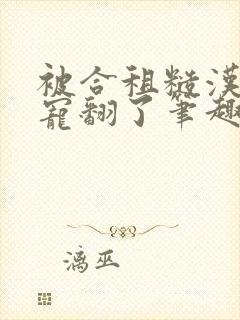 被合租糙漢
寵翻了筆趣
漓巫